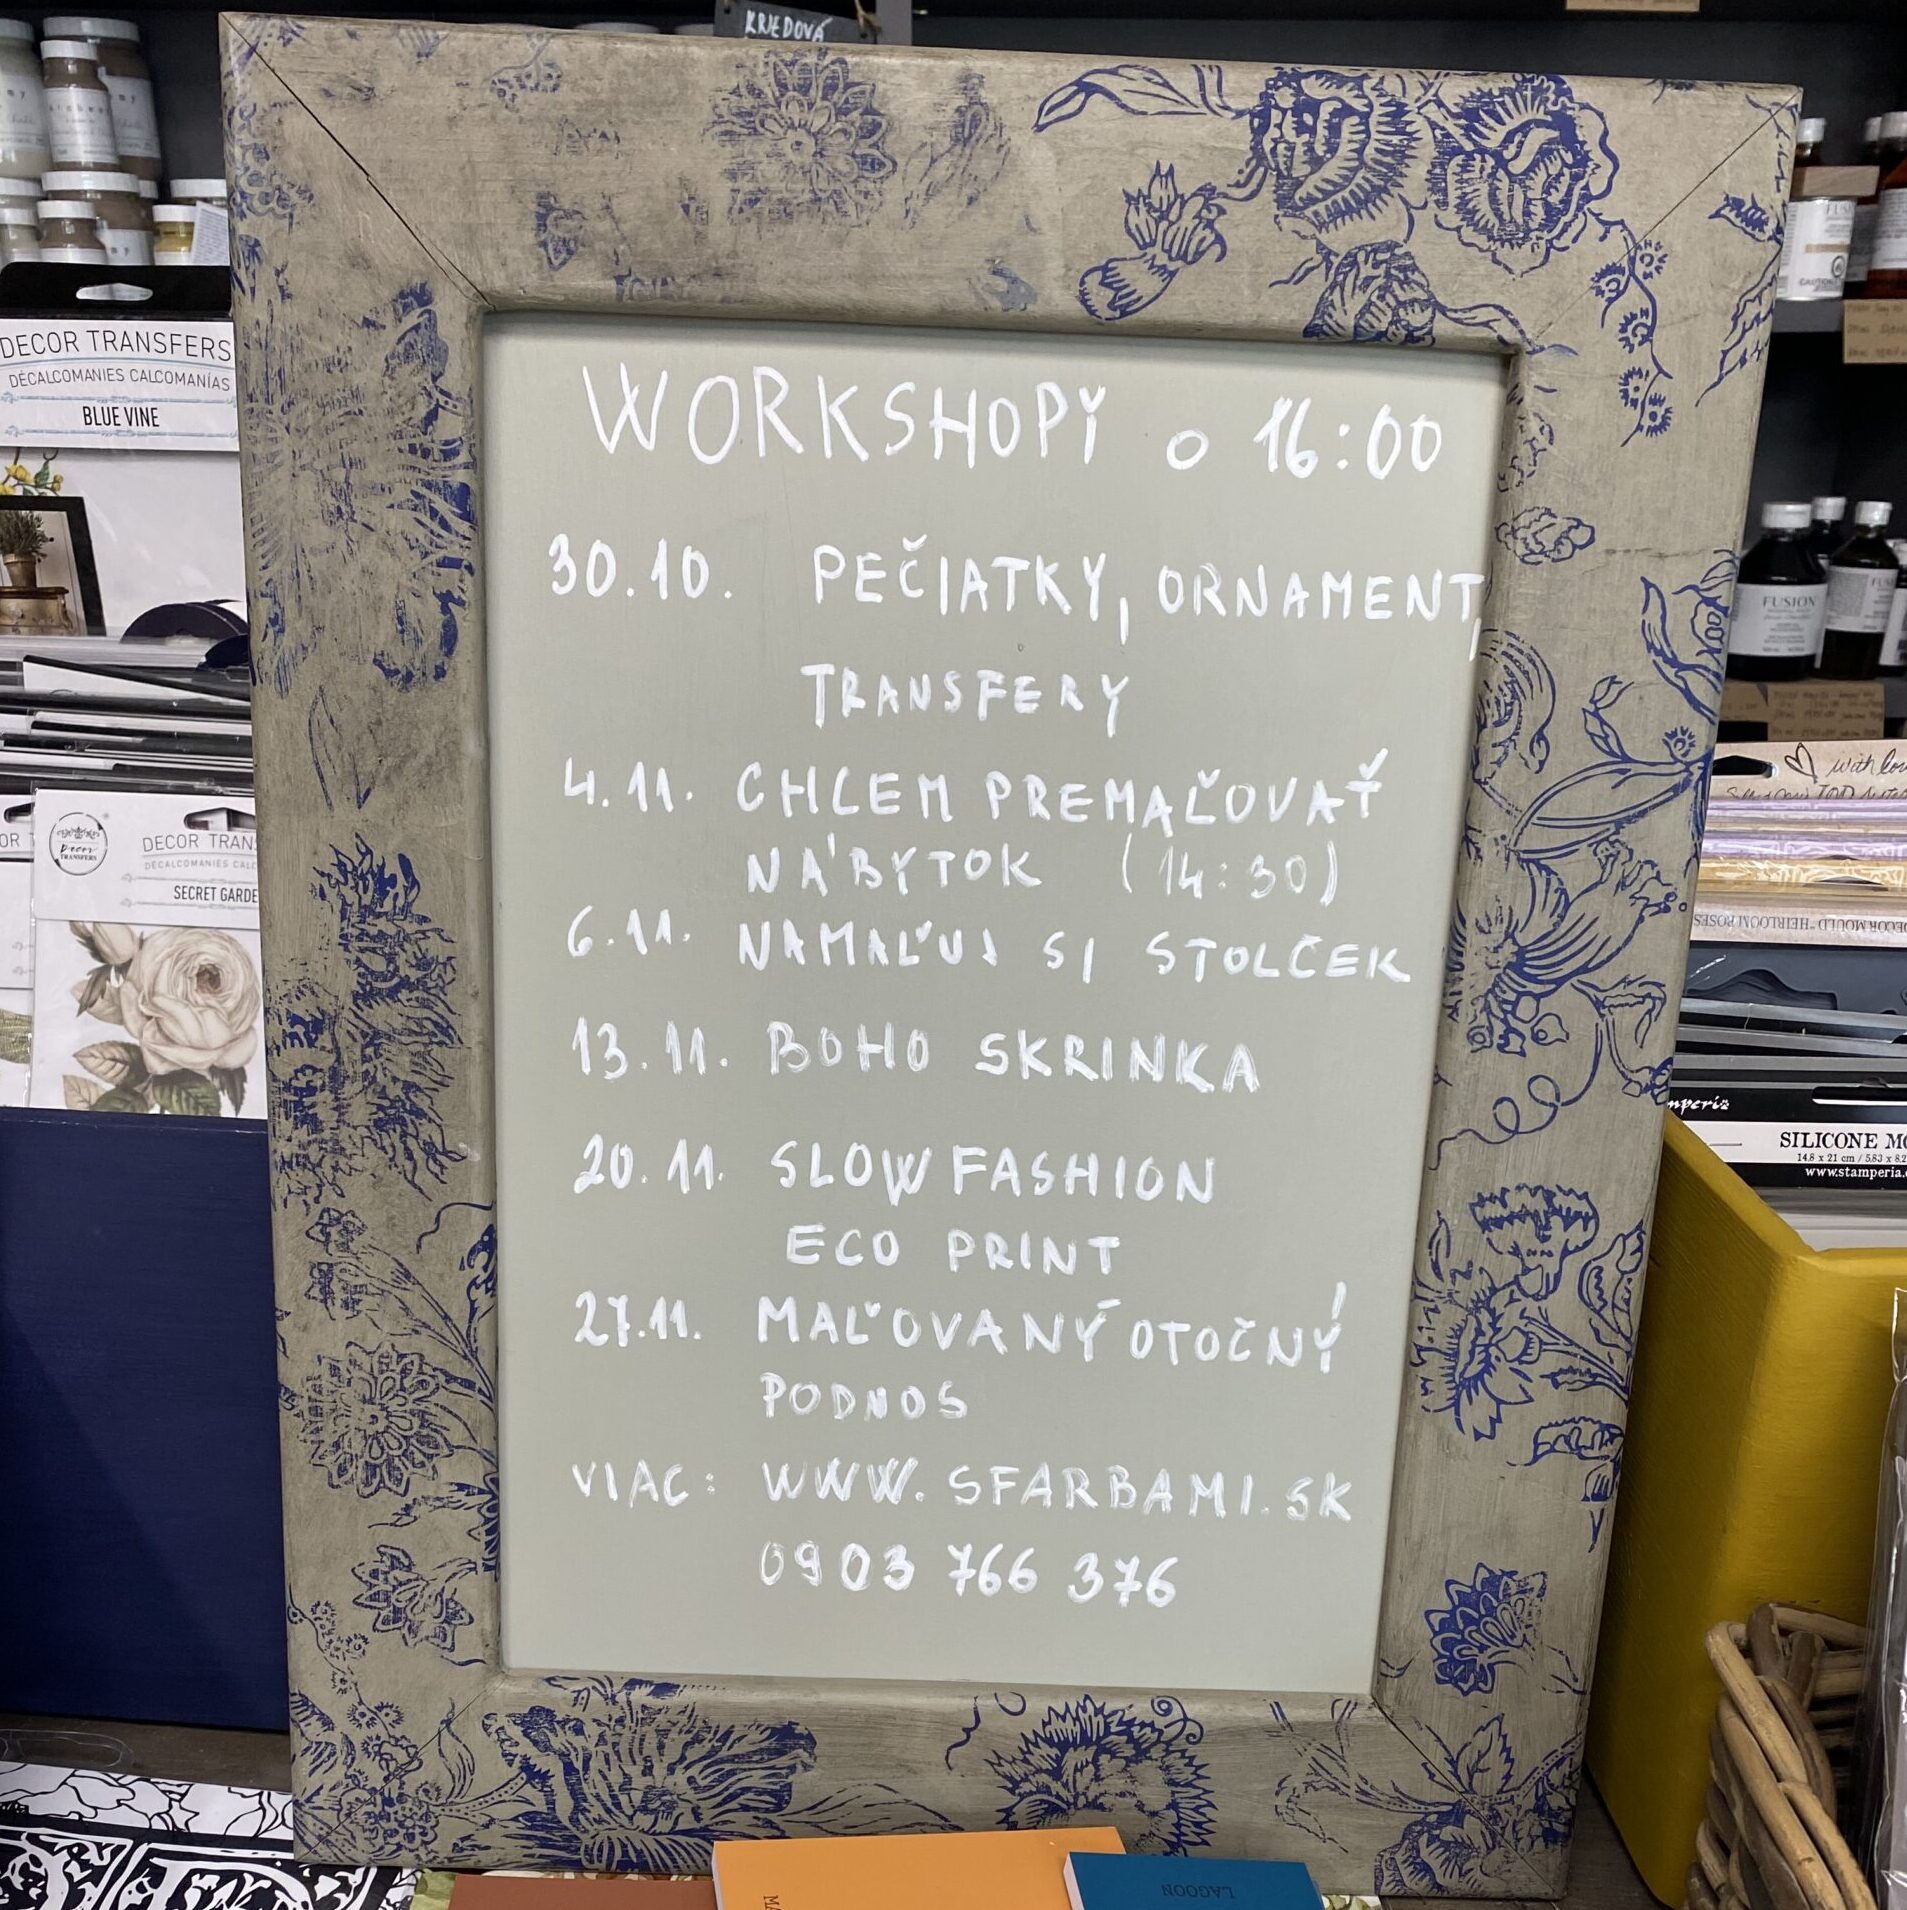 KRIEDOVÁ
DECOR TRANSFERS
DÉCALCOMANIES CALCOMANÍAS
BLUE VINE
WORKSHOPY o 16:00
30.10. PEČIATKY, ORNAMENT,
TRANSFERY
4.11. CHCEM PREMAĽOVAŤ
NÁBYTOK (14:30)
6.11. NAMAĽUJ SI STOLČEK
13.11. BOHO SKRINKA
20.11. SLOW FASHION
ECO PRINT
27.11. MAĽOVANÝ OTOČNÝ
PODNOS
VIAC: WWW.SFARBAMI.SK
0903 766 376
DECOR TRAN
DÉCALCOMANIES CALC
SECRET GARDE
Decor
TRANSFERS
FUSION
with lov
DECOR MOULD "HEIRLOOM ROSES
mperia
SILICONE MO
14.8 x 21 cm / 5.83 x 8.2
www.stamperia.
LAGOON
MA